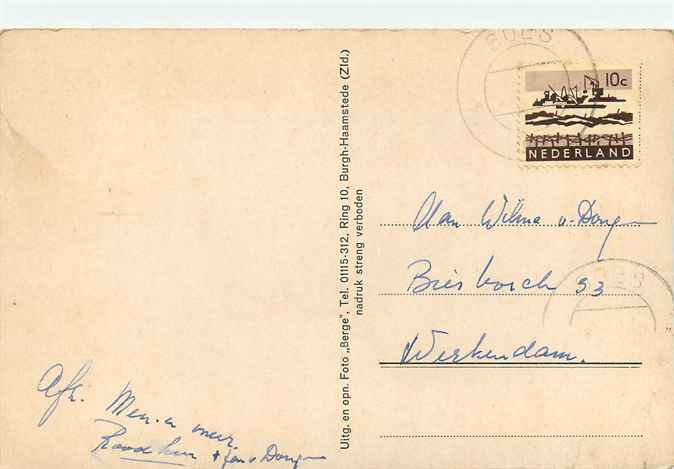 GOES
10c
NEDERLAND
Uitg. en opn. Foto „Berge”, Tel. 01115-312, Ring 10, Burgh-Haamstede (Zld.)
nadruk streng verboden
Aan Wilma v. Dongen
Biesbosch 53
Werkendam.
Afz. Men. en mevr.
+ Jan v Dongen